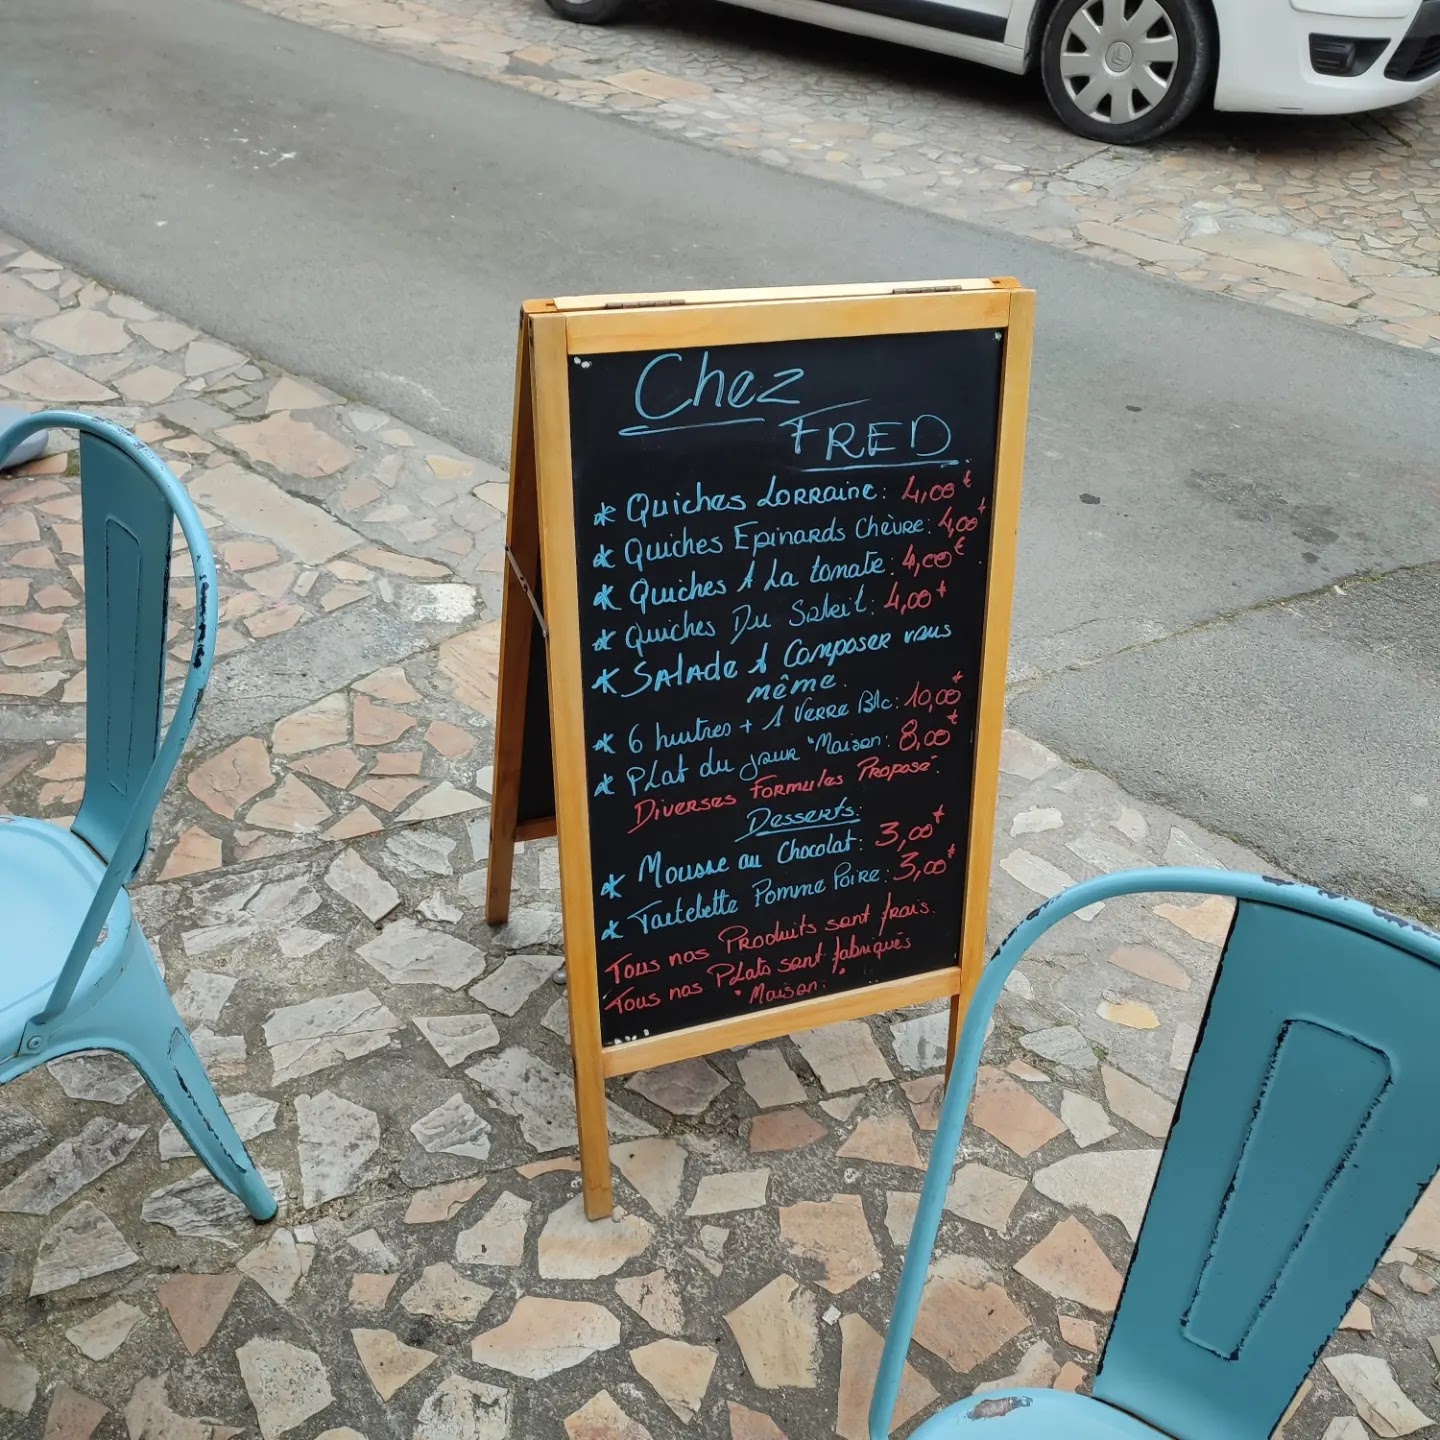 Chez
FRED
* Quiches Lorraine: 4,00€
* Quiches Epinards Chèvre: 4,00€
* Quiches A La tomate: 4,00€
* Quiches Du Soleil: 4,00€
* SALADE A Composer vous
même.
* 6 huitres + 1 Verre Blc: 10,00€
* PLat du jour "Maison: 8,00€
Diverses Formules Proposé.
Desserts:
* Mousse au Chocolat: 3,00€
* Tartelette Pomme Poire: 3,00€
Tous nos Produits sont frais.
Tous nos PLats sont fabriqués
"Maison."